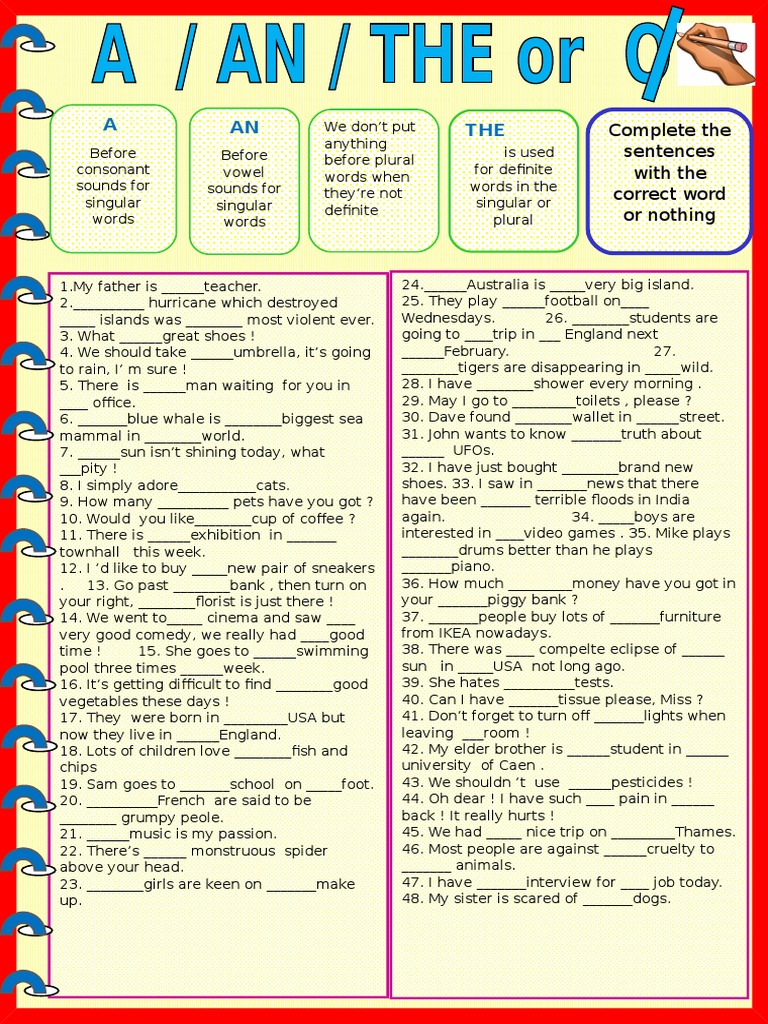 A / AN / THE or O
A
Before
consonant
sounds for
singular
words
AN
Before
vowel
sounds for
singular
words
We don't put
anything
before plural
words when
they're not
definite
THE
is used
for definite
words in the
singular or
plural
Complete the
sentences
with the
correct word
or nothing
1.My father is ______teacher.
2.__________ hurricane which destroyed
_____ islands was ________ most violent ever.
3. What ______great shoes !
4. We should take ______umbrella, it's going
to rain, I' m sure !
5. There is ______man waiting for you in
____ office.
6. _______blue whale is ________biggest sea
mammal in ________world.
7. ______sun isn't shining today, what
___pity !
8. I simply adore___________cats.
9. How many __________ pets have you got ?
10. Would you like________cup of coffee ?
11. There is ______exhibition in _______
townhall this week.
12. I 'd like to buy _____new pair of sneakers
. 13. Go past ________bank , then turn on
your right, ________florist is just there !
14. We went to_____ cinema and saw ____
very good comedy, we really had ____good
time ! 15. She goes to ______swimming
pool three times ______week.
16. It's getting difficult to find ________good
vegetables these days !
17. They were born in _________USA but
now they live in ______England.
18. Lots of children love ________fish and
chips
19. Sam goes to _______school on _____foot.
20. __________French are said to be
________ grumpy peole.
21. ______music is my passion.
22. There's ______ monstruous spider
above your head.
23. ________girls are keen on _______make
up.
24.______Australia is _____very big island.
25. They play ______football on____
Wednesdays. 26. ________students are
going to ____trip in ___ England next
______February. 27.
________tigers are disappearing in _____wild.
28. I have ________shower every morning .
29. May I go to _________toilets , please ?
30. Dave found ________wallet in ______street.
31. John wants to know _______truth about
______ UFOs.
32. I have just bought ________brand new
shoes. 33. I saw in _______news that there
have been _______ terrible floods in India
again. 34. _____boys are
interested in ____video games . 35. Mike plays
________drums better than he plays
_______piano.
36. How much _________money have you got in
your _______piggy bank ?
37. _______people buy lots of _______furniture
from IKEA nowadays.
38. There was ____ compelte eclipse of ______
sun in _____USA not long ago.
39. She hates __________tests.
40. Can I have _______tissue please, Miss ?
41. Don't forget to turn off _______lights when
leaving ___room !
42. My elder brother is ______student in ______
university of Caen .
43. We shouldn 't use ______pesticides !
44. Oh dear ! I have such ____ pain in ______
back ! It really hurts !
45. We had _____ nice trip on _________Thames.
46. Most people are against ______cruelty to
_______ animals.
47. I have _______interview for ____ job today.
48. My sister is scared of _______dogs.